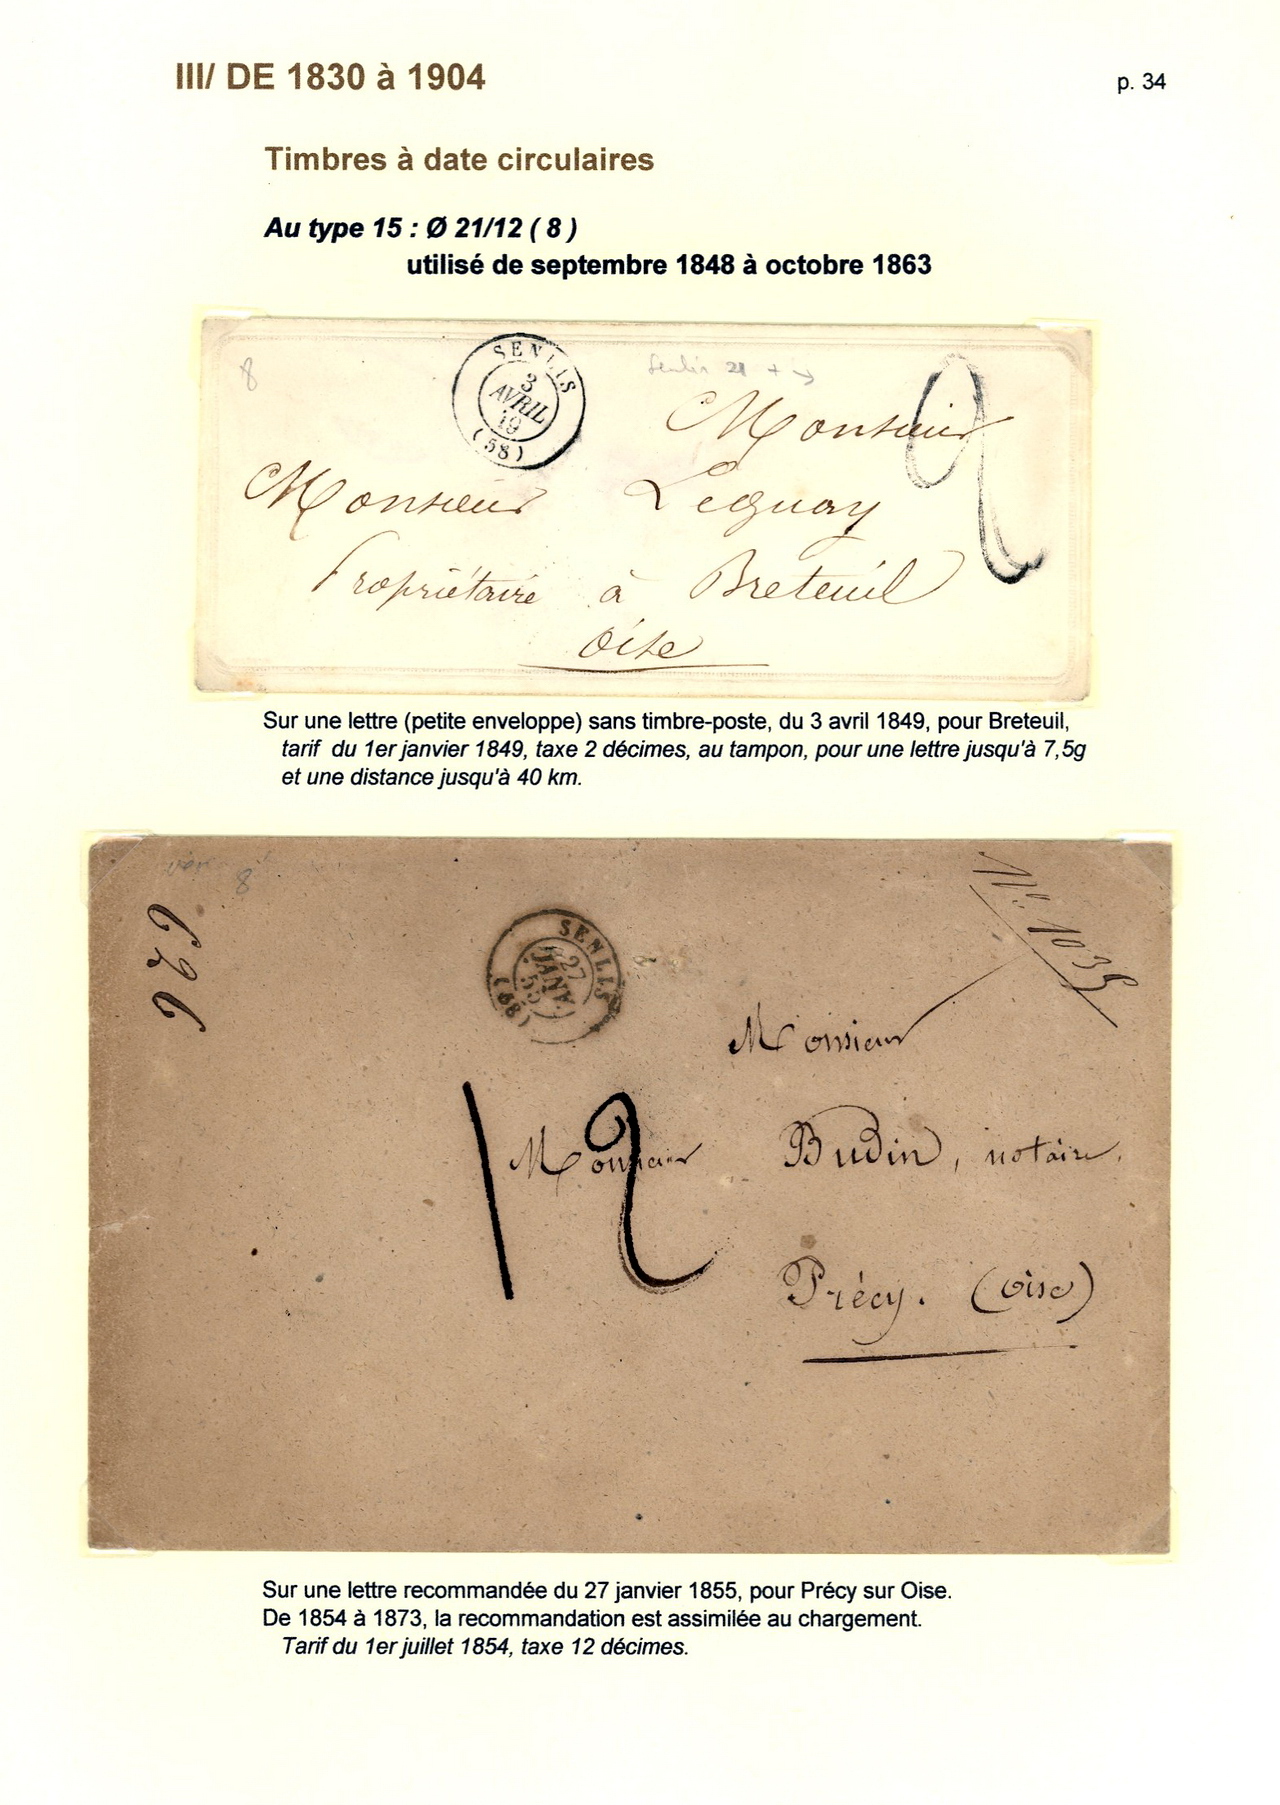 III/ DE 1830 à 1904
p. 34
Timbres à date circulaires
Au type 15 : Ø 21/12 ( 8 )
utilisé de septembre 1848 à octobre 1863
8
SENLIS
3
AVRIL
49
(58)
Senlis 21 + →
2
Monsieur
Monsieur Leguay
Propriétaire à Breteuil
Oise
Sur une lettre (petite enveloppe) sans timbre-poste, du 3 avril 1849, pour Breteuil,
tarif du 1er janvier 1849, taxe 2 décimes, au tampon, pour une lettre jusqu'à 7,5g
et une distance jusqu'à 40 km.
8
N° 1035
SENLIS
27
JANV.
55
(58)
Monsieur
12
Monsieur Budin, notaire.
Précy. (Oise)
Sur une lettre recommandée du 27 janvier 1855, pour Précy sur Oise.
De 1854 à 1873, la recommandation est assimilée au chargement.
Tarif du 1er juillet 1854, taxe 12 décimes.